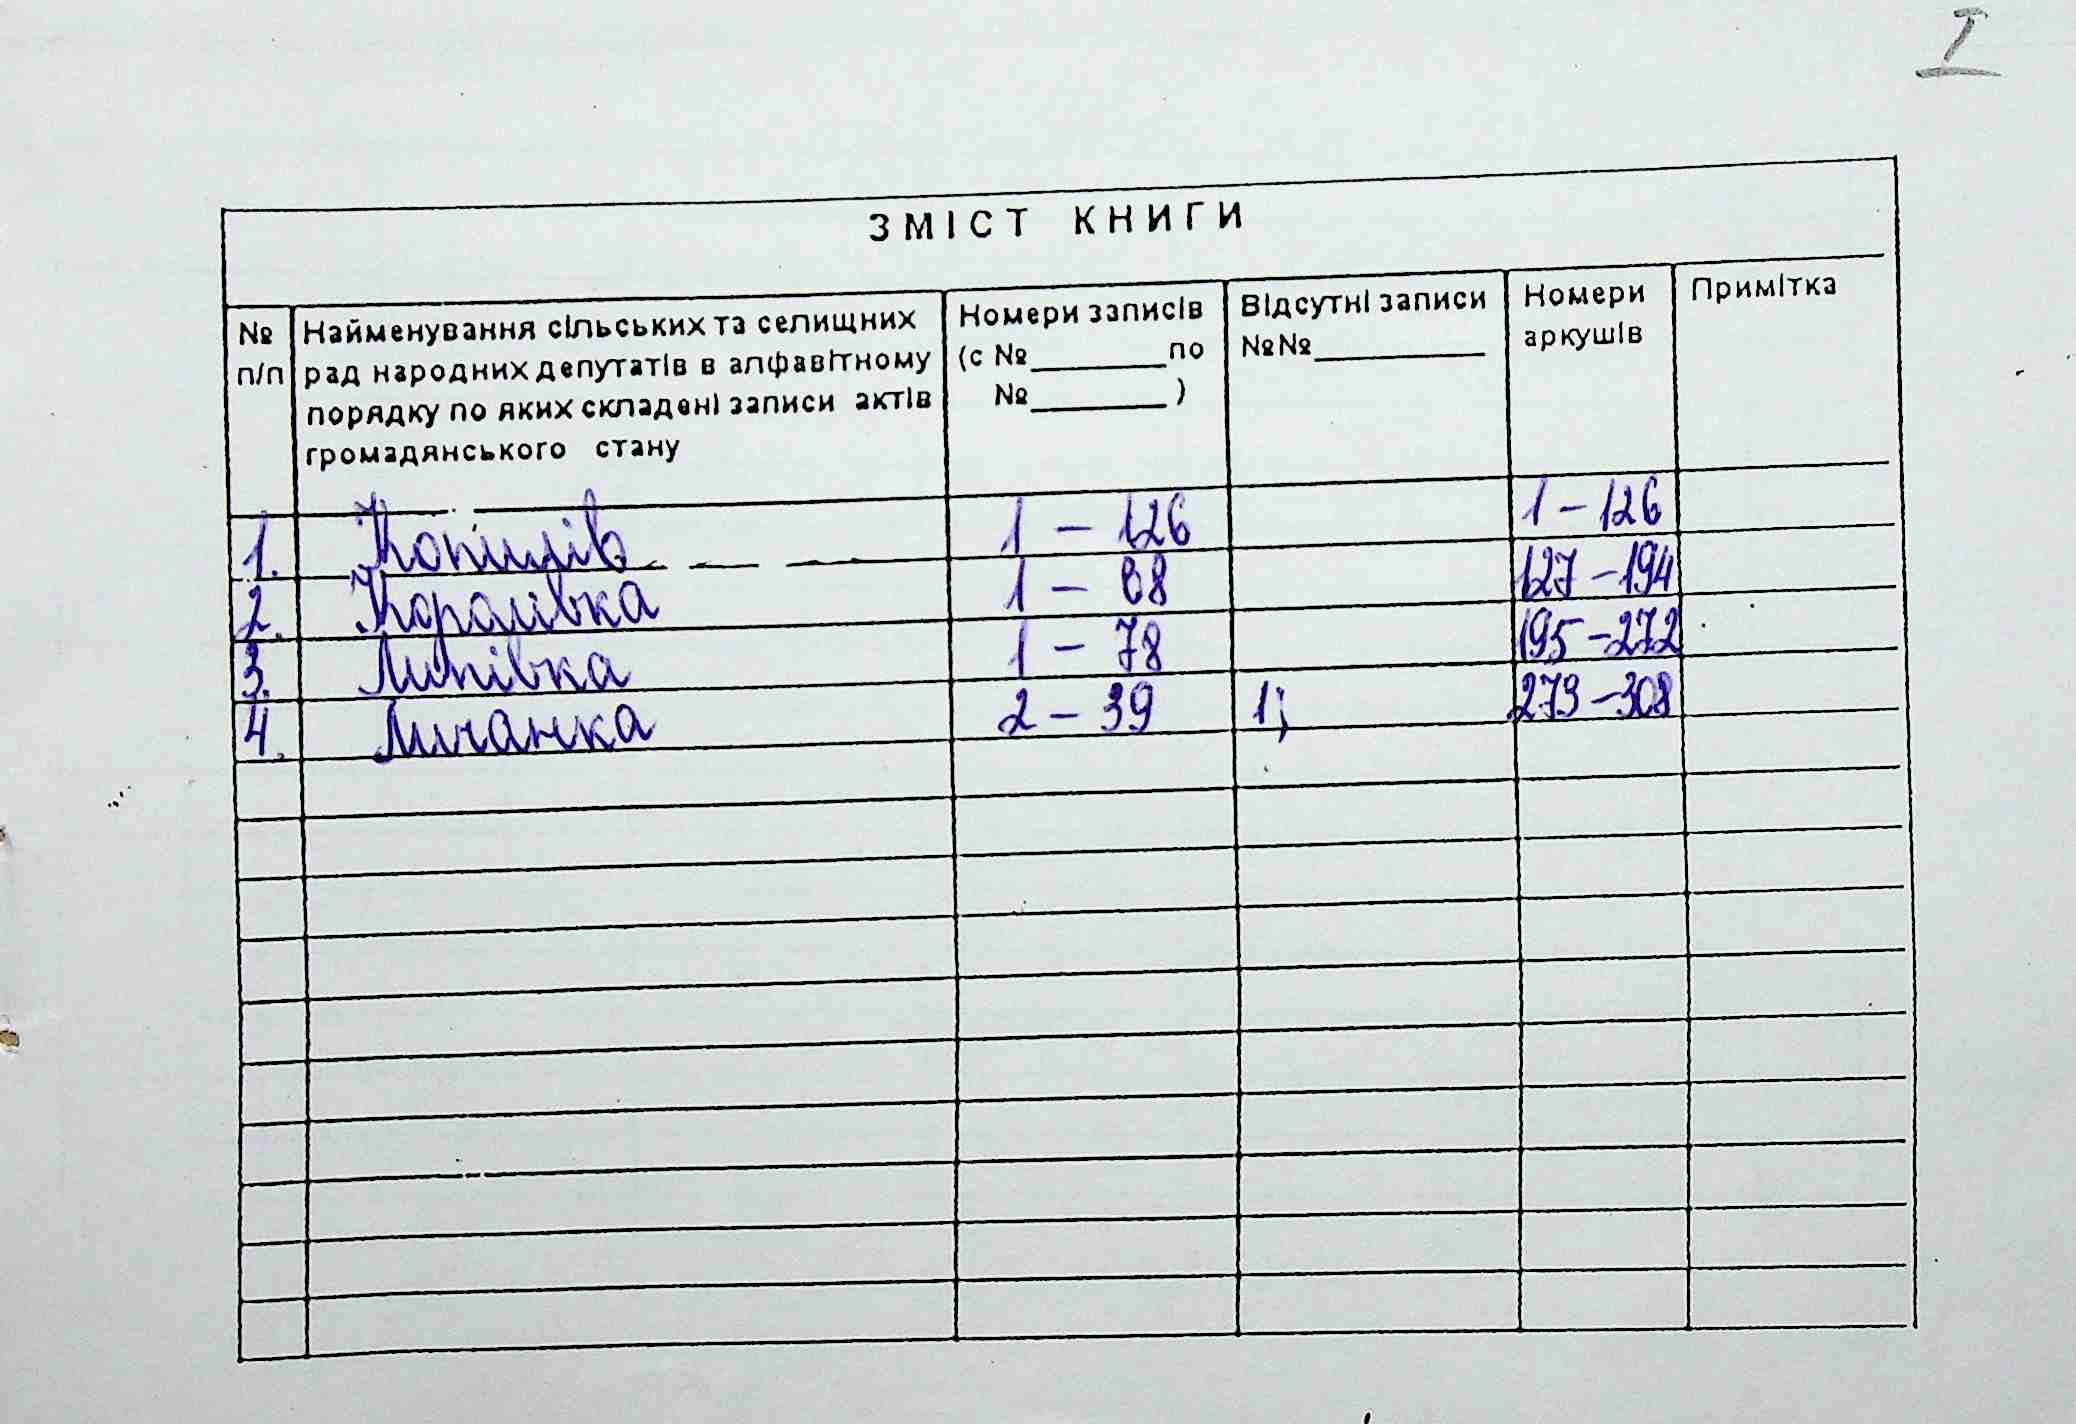 I
ЗМІСТ КНИГИ
№ п/п
Найменування сільських та селищних
рад народних депутатів в алфавітному
порядку по яких складені записи актів
громадянського стану
Номери записів
(с №________по
№________)
Відсутні записи
№№__________
Номери
аркушів
Примітка
1. Копилів 1 – 126 1 – 126
2. Королівка 1 – 68 127 – 194
3. Липівка 1 – 78 195 – 272
4. Личанка 2 – 39 1; 273 – 308